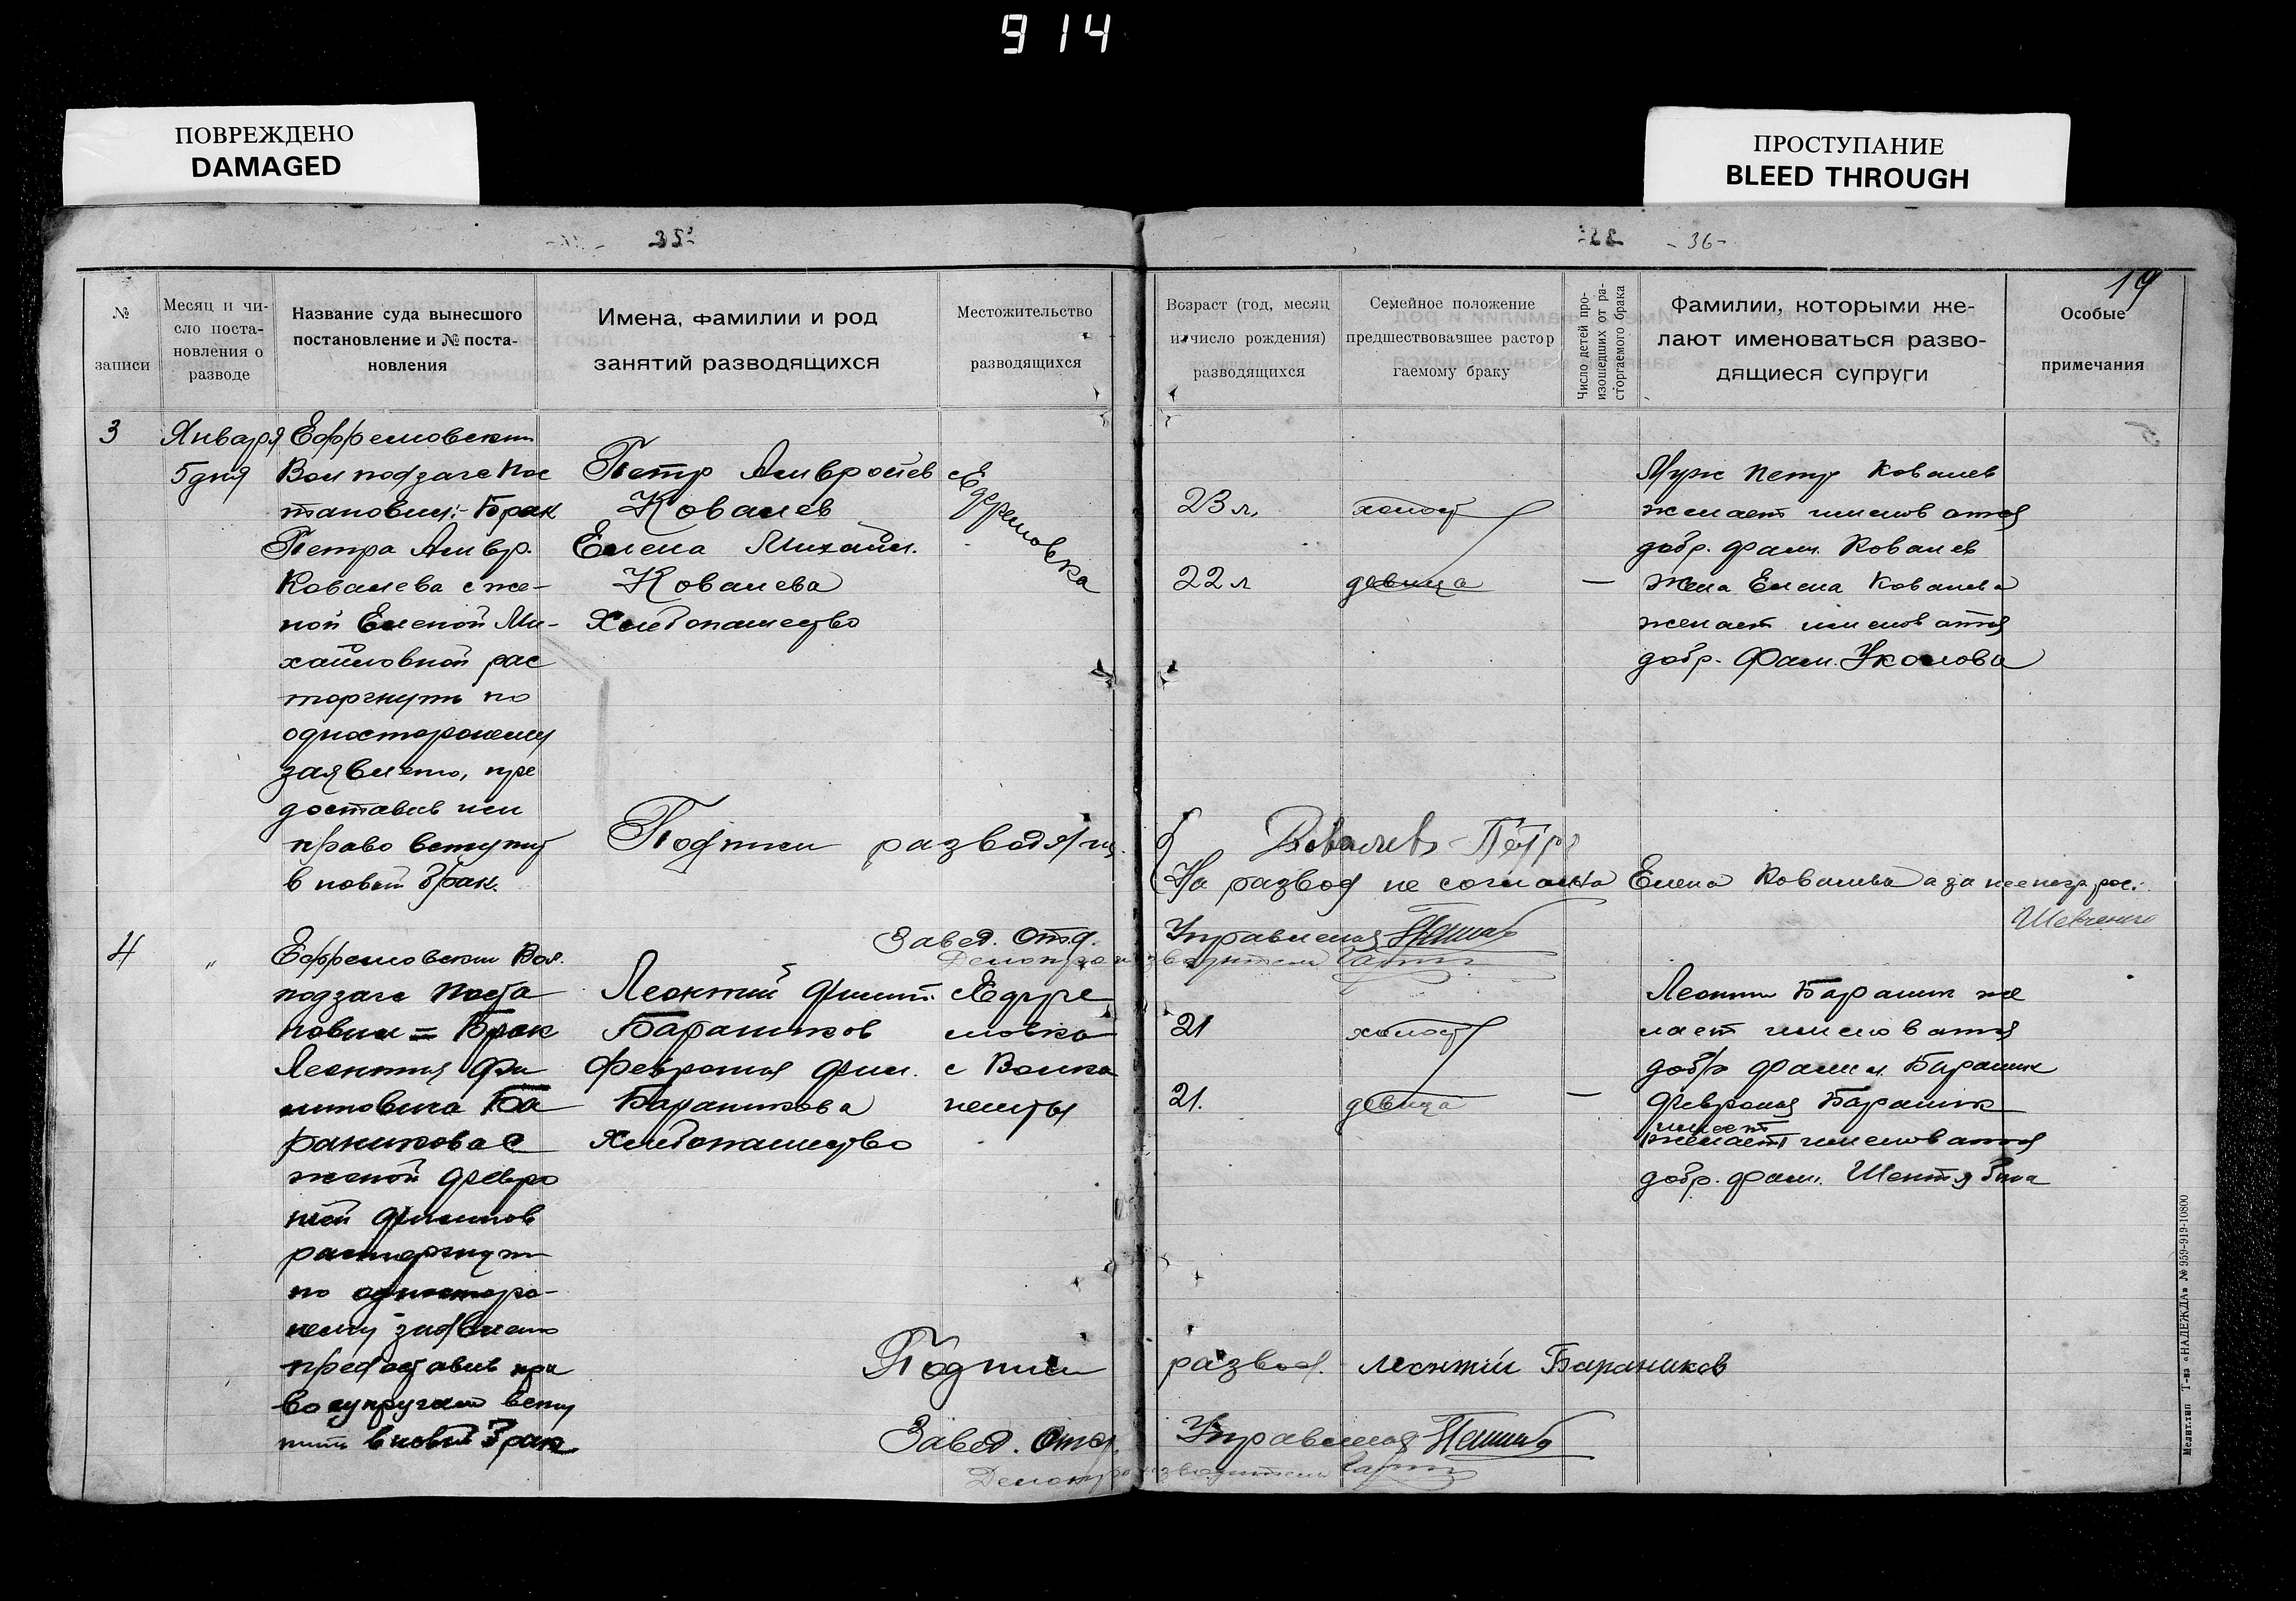 914
ПОВРЕЖДЕНО
DAMAGED
ПРОСТУПАНИЕ
BLEED THROUGH
35
- 36 -
19
№ записи
Месяц и чи-
сло поста-
новления о
разводе
Название суда вынесшого
постановление и № поста-
новления
Имена, фамилии и род
занятий разводящихся
Местожительство
разводящихся
Возраст (год, месяц
и число рождения)
разводящихся
Семейное положение
предшествовавшее растор
гаемому браку
Число детей про-
изошедших от ра-
сторгаемого брака
Фамилии, которыми же-
лают именоваться разво-
дящиеся супруги
Особые
примечания
3
Января
5 дня
Ефремовским
Вол подзагс Пос
тановил:- Брак
Петра Амвр.
Ковалева с же-
ной Еленой Ми-
хайловной рас
торгнуть по
одностороннему
заявлению, пре
доставив им
право вступить
в новый брак.
Петр Амвросиев
Ковалев
Елена Михайл.
Ковалева
Хлебопашество
с Ефремовка
23 л.
холост
22 л
девица
—
Муж Петр Ковалев
желает именоватся
добр. фам. Ковалев
Жена Елена Ковалева
желает именоватся
добр. Фам. Уколова
Подписи разводящ.
Ковалев Пётр
На развод не согласна Елена Ковалева а за нее негр рос:
Шевченко
Завед. Отд. Управления
Делопроизводитель
4
"
Ефремовским Вол.
подзагс Поста
новил = Брак
Леонтия Фи
липовича Ба
раникова с
женой Февро
нией Филипов
расторгнуть
по односторо-
нему заявлению
предоставив пра
во супругам всту
пить в новый брак
Леонтий Филип.
Бараников
Феврония Фил.
Бараникова
Хлебопашество
с Ефре
мовка
с Волко
нешты
21
холост
21.
девица
—
Леонтий Бараник же
лает именоватся
добр фамил Бараник
Феврония Бараник
желает именоватся
добр. фам.
Подписи развод. Леонтий Бараников
Завед. Отд. Управления
Делопроизводитель
Мелит.тип Т-ва «НАДЕЖДА» № 959-919-10800